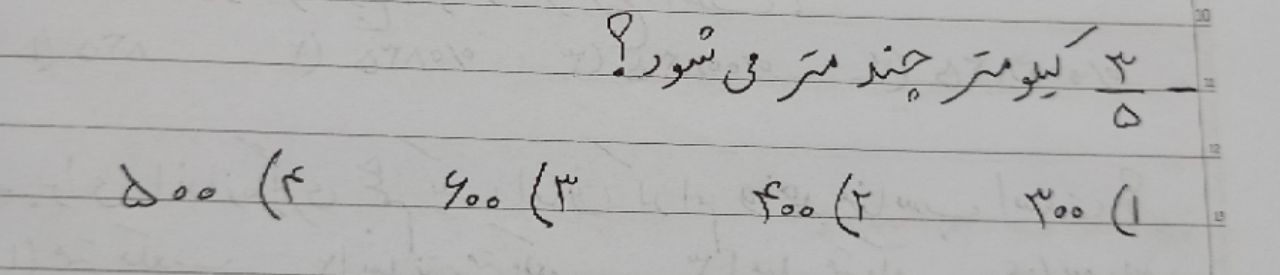 - ۳/۵ کیلومتر چند متر می شود؟
۱) ۳۰۰ ۲) ۴۰۰ ۳) ۶۰۰ ۴) ۵۰۰